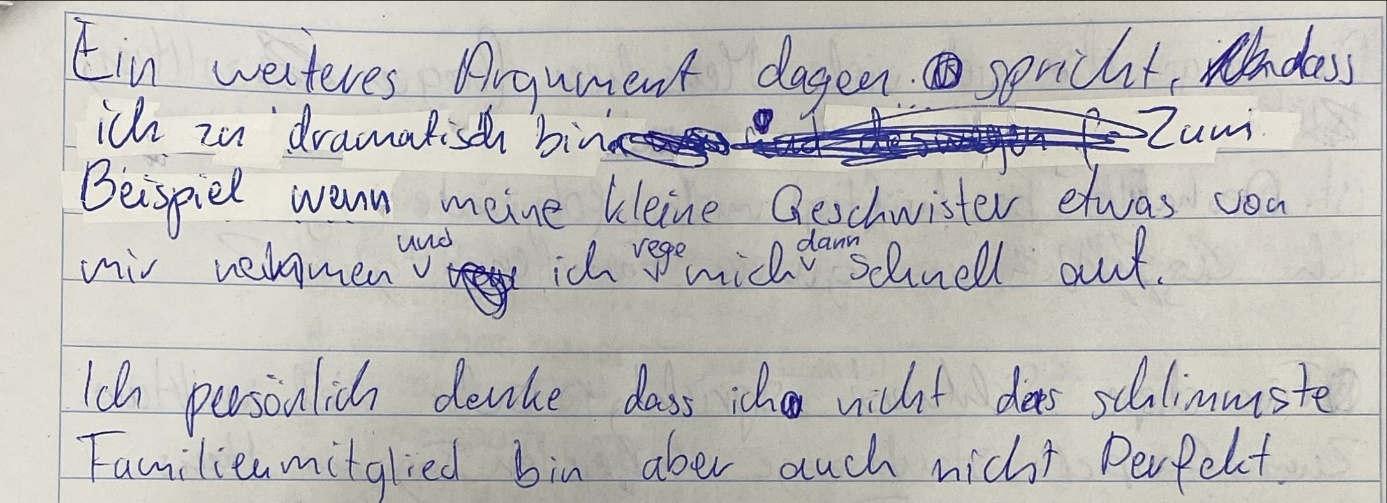 Ein weiteres Argument dagen spricht, dass
ich zu dramatisch bin Zum
Beispiel wenn meine kleine Geschwister etwas von
mir nehmen und ich rege mich dann schnell auf.
Ich persönlich denke dass ich nicht das schlimmste
Familienmitglied bin aber auch nicht Perfekt